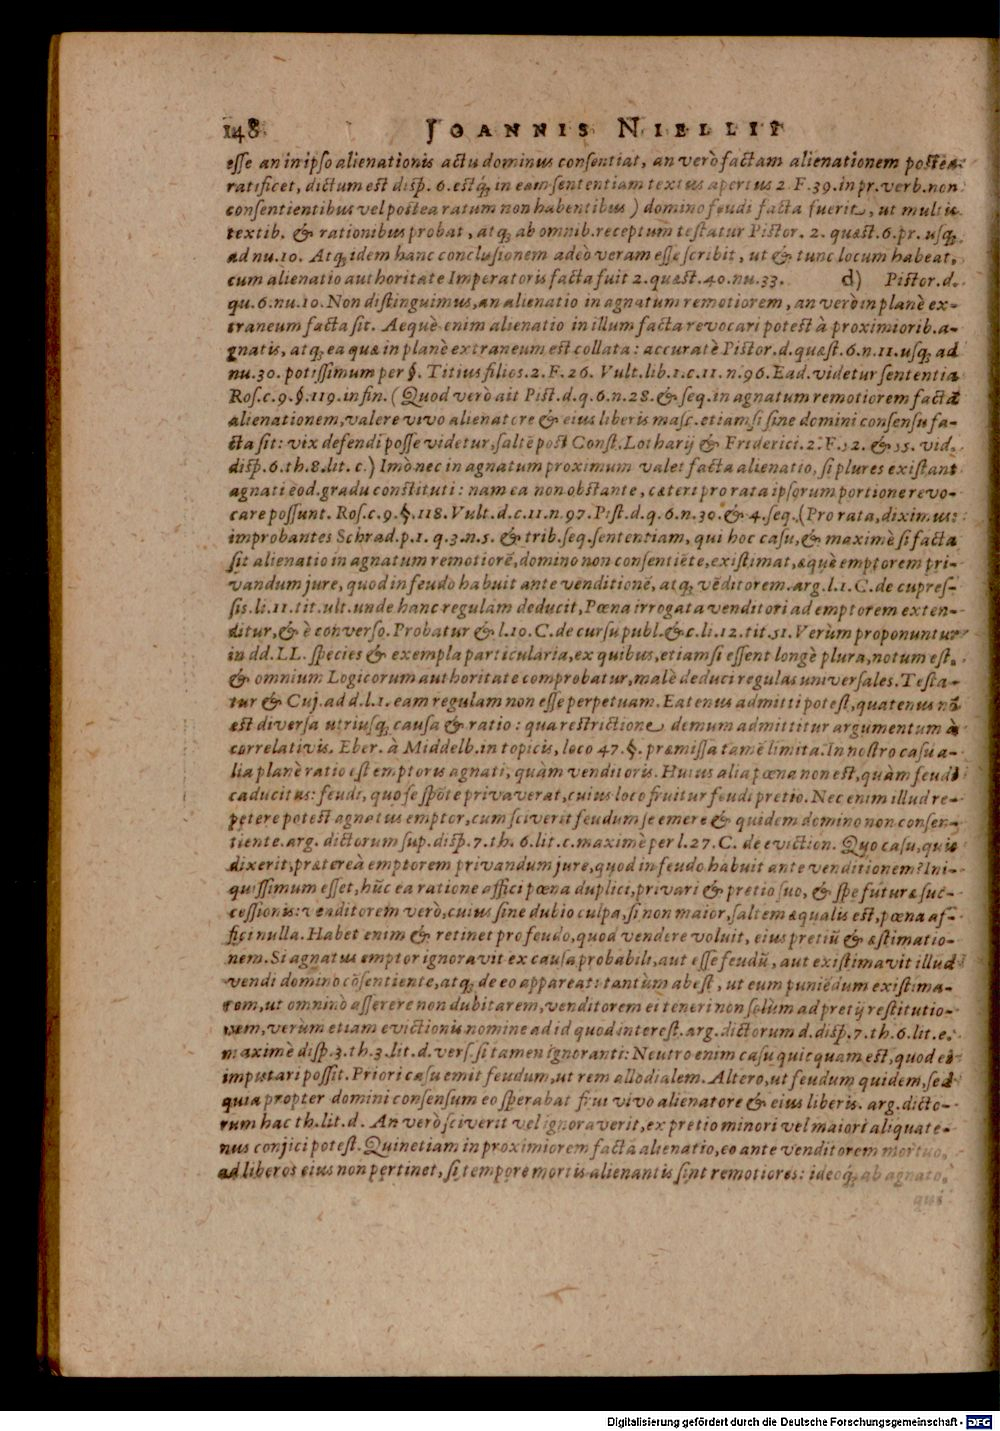 148 JOANNIS NIELLII
esse an in ipso alienationis actu dominus consentiat, an verò factam alienationem postea
ratificet, dictum est disp. 6. estq́; in eam sententiam textus apertus 2. F. 39. in pr. verb. non
consentientibus vel postea ratum non habentibus) domino feudi facta fuerit, ut multis
textib. & rationibus probat, atq; ab omnib. receptum testatur Pistor. 2. quæst. 6. pr. usq;
ad nu. 10. Atq; idem hanc conclusionem adeò veram esse scribit, ut & tunc locum habeat,
cum alienatio authoritate Imperatoris facta fuit 2. quæst. 40. nu. 33. d) Pistor. d.
qu. 6. nu. 10. Non distinguimus, an alienatio in agnatum remotiorem, an verò in planè ex-
traneum facta sit. Aequè enim alienatio in illum facta revocari potest à proximiorib. a-
gnatis, atq; ea quæ in planè extraneum est collata: accuratè Pistor. d. quæst. 6. n. 11. usq; ad
nu. 30. potissimum per §. Titius filios. 2. F. 26. Vult. lib. 1. c. 11. n. 96. Ead. videtur sententia
Ros. c. 9. §. 119. in fin. (Quod verò ait Pist. d. q. 6. n. 28. & seq. in agnatum remotiorem factā
alienationem, valere vivo alienatore & eius liberis masc. etiamsi sine domini consensu fa-
cta sit: vix defendi posse videtur, saltē post Const. Lotharij & Friderici. 2. F. 52. & 55. vid.
disp. 6. th. 8. lit. c.) Imò nec in agnatum proximum valet facta alienatio, si plures existant
agnati eod. gradu constituti: nam ea non obstante, cæteri pro rata ipsorum portione revo-
care possunt. Ros. c. 9. §. 118. Vult. d. c. 11. n. 97. Pist. d. q. 6. n. 30. & 4. seq. (Pro rata, diximus:
improbantes Schrad. p. 1. q. 3. n. 5. & trib. seq. sententiam, qui hoc casu, & maximè si facta
sit alienatio in agnatum remotiorē, domino non consentiēte, existimat, æquè emptorem pri-
vandum jure, quod in feudo habuit ante venditionē, atq; vēditorem. arg. l. 1. C. de cupres-
sis. li. 11. tit. ult. unde hanc regulam deducit, Pœna irrogata venditori ad emptorem exten-
ditur, & è converso. Probatur & l. 10. C. de cursu publ. & c. li. 12. tit. 51. Verùm proponuntur
in dd. LL. species & exempla particularia, ex quibus, etiamsi essent longè plura, notum est,
& omnium Logicorum authoritate comprobatur, malè deduci regulas universales. Testa-
tur & Cuj. ad d. l. 1. eam regulam non esse perpetuam. Eatenus admitti potest, quatenus nō
est diversa utriusq; causa & ratio: qua restrictione demum admittitur argumentum à
correlativis. Eber. à Middelb. in topicis, loco 47. §. præmissa tamē limita. In nostro casu a-
lia planè ratio est emptoris agnati, quàm venditoris. Huius alia pœna non est, quàm feudi
caducitas: feudi, quo se spōte privaverat, cuius loco fruitur feudi pretio. Nec enim illud re-
petere potest agnatus emptor, cum sciverit feudum se emere & quidem domino non consen-
tiente. arg. dictorum sup. disp. 7. th. 6. lit. c. maximè per l. 27. C. de eviction. Quo casu, quis
dixerit, præterea emptorem privandum jure, quod in feudo habuit ante venditionem? Ini-
quissimum esset, hūc ea ratione affici pœna duplici, privari & pretio suo, & spe futuræ suc-
cessionis: venditorem verò, cuius sine dubio culpa, si non maior, saltem æqualis est, pœna af-
fici nulla. Habet enim & retinet pro feudo, quod vendere voluit, eius pretiū & æstimatio-
nem. Si agnatus emptor ignoravit ex causa probabili, aut esse feudū, aut existimavit illud
vendi domino cōsentiente, atq; de eo appareat: tantùm abest, ut eum puniēdum existima-
rem, ut omninò asserere non dubitarem, venditorem ei teneri non solùm ad pretij restitutio-
nem, verùm etiam evictionis nomine ad id quod interest. arg. dictorum d. disp. 7. th. 6. lit. e.
maximè disp. 3. th. 3. lit. d. vers. si tamen ignoranti: Neutro enim casu quicquam est, quod ei
imputari possit. Priori casu emit feudum, ut rem allodialem. Altero, ut feudum quidem, sed
quia propter domini consensum eo sperabat frui vivo alienatore & eius liberis. arg. dicto-
rum hac th. lit. d. An verò sciverit vel ignoraverit, ex pretio minori vel maiori aliquate-
nus conjici potest. Quinetiam in proximiorem facta alienatio, eo ante venditorem mortuo,
ad liberos eius non pertinet, si tempore mortis alienantis sint remotiores: ideoq́; ab agnato,
qui
Digitalisierung gefördert durch die Deutsche Forschungsgemeinschaft - DFG